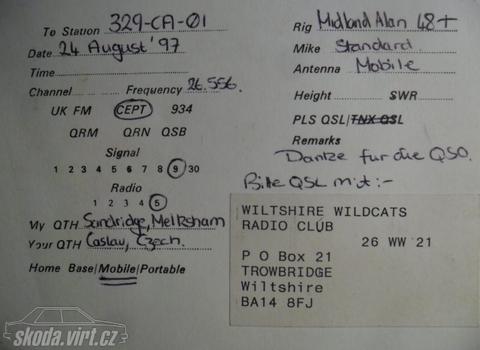 To Station 329-CA-01
Date 24 August '97
Time
Channel Frequency 26.556.
UK FM CEPT 934
QRM QRN QSB
Signal
1 2 3 4 5 6 7 8 9 30
Radio
1 2 3 4 5
My QTH Sandridge, Melksham
Your QTH Caslav, Czech.
Home Base/Mobile/Portable
Rig Midland Alan 48+
Mike Standard
Antenna Mobile
Height SWR
PLS QSL/TNX QSL
Remarks
Danke fur die QSO.
Bitte QSL mit:-
WILTSHIRE WILDCATS
RADIO CLUB
26 WW 21
P O Box 21
TROWBRIDGE
Wiltshire
BA14 8FJ
skoda.virt.cz